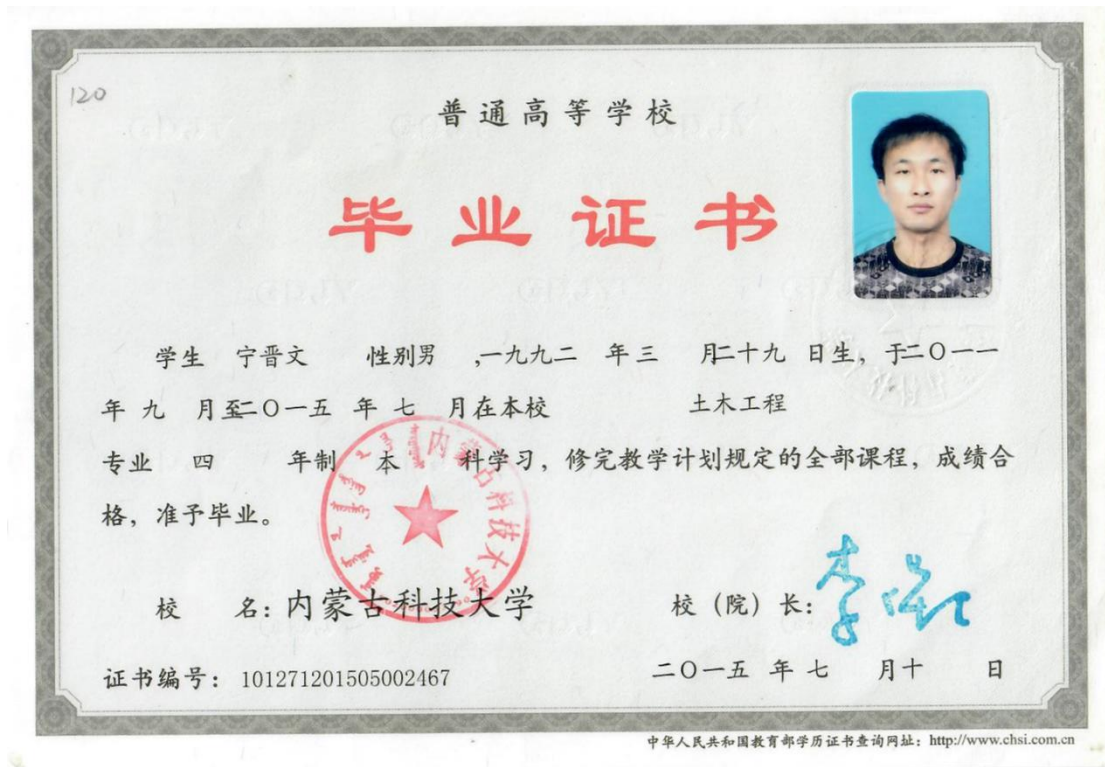 120
普通高等学校
毕业证书
学生 宁晋文 性别男 ,一九九二 年三 月二十九 日生，于二〇一一
年 九 月至二〇一五 年 七 月在本校 土木工程
专业 四 年制 本 科学习，修完教学计划规定的全部课程，成绩合
格，准予毕业。
内蒙古科技大学
校 名：内蒙古科技大学 校（院）长：
证书编号：101271201505002467 二〇一五 年 七 月十 日
中华人民共和国教育部学历证书查询网址：http://www.chsi.com.cn